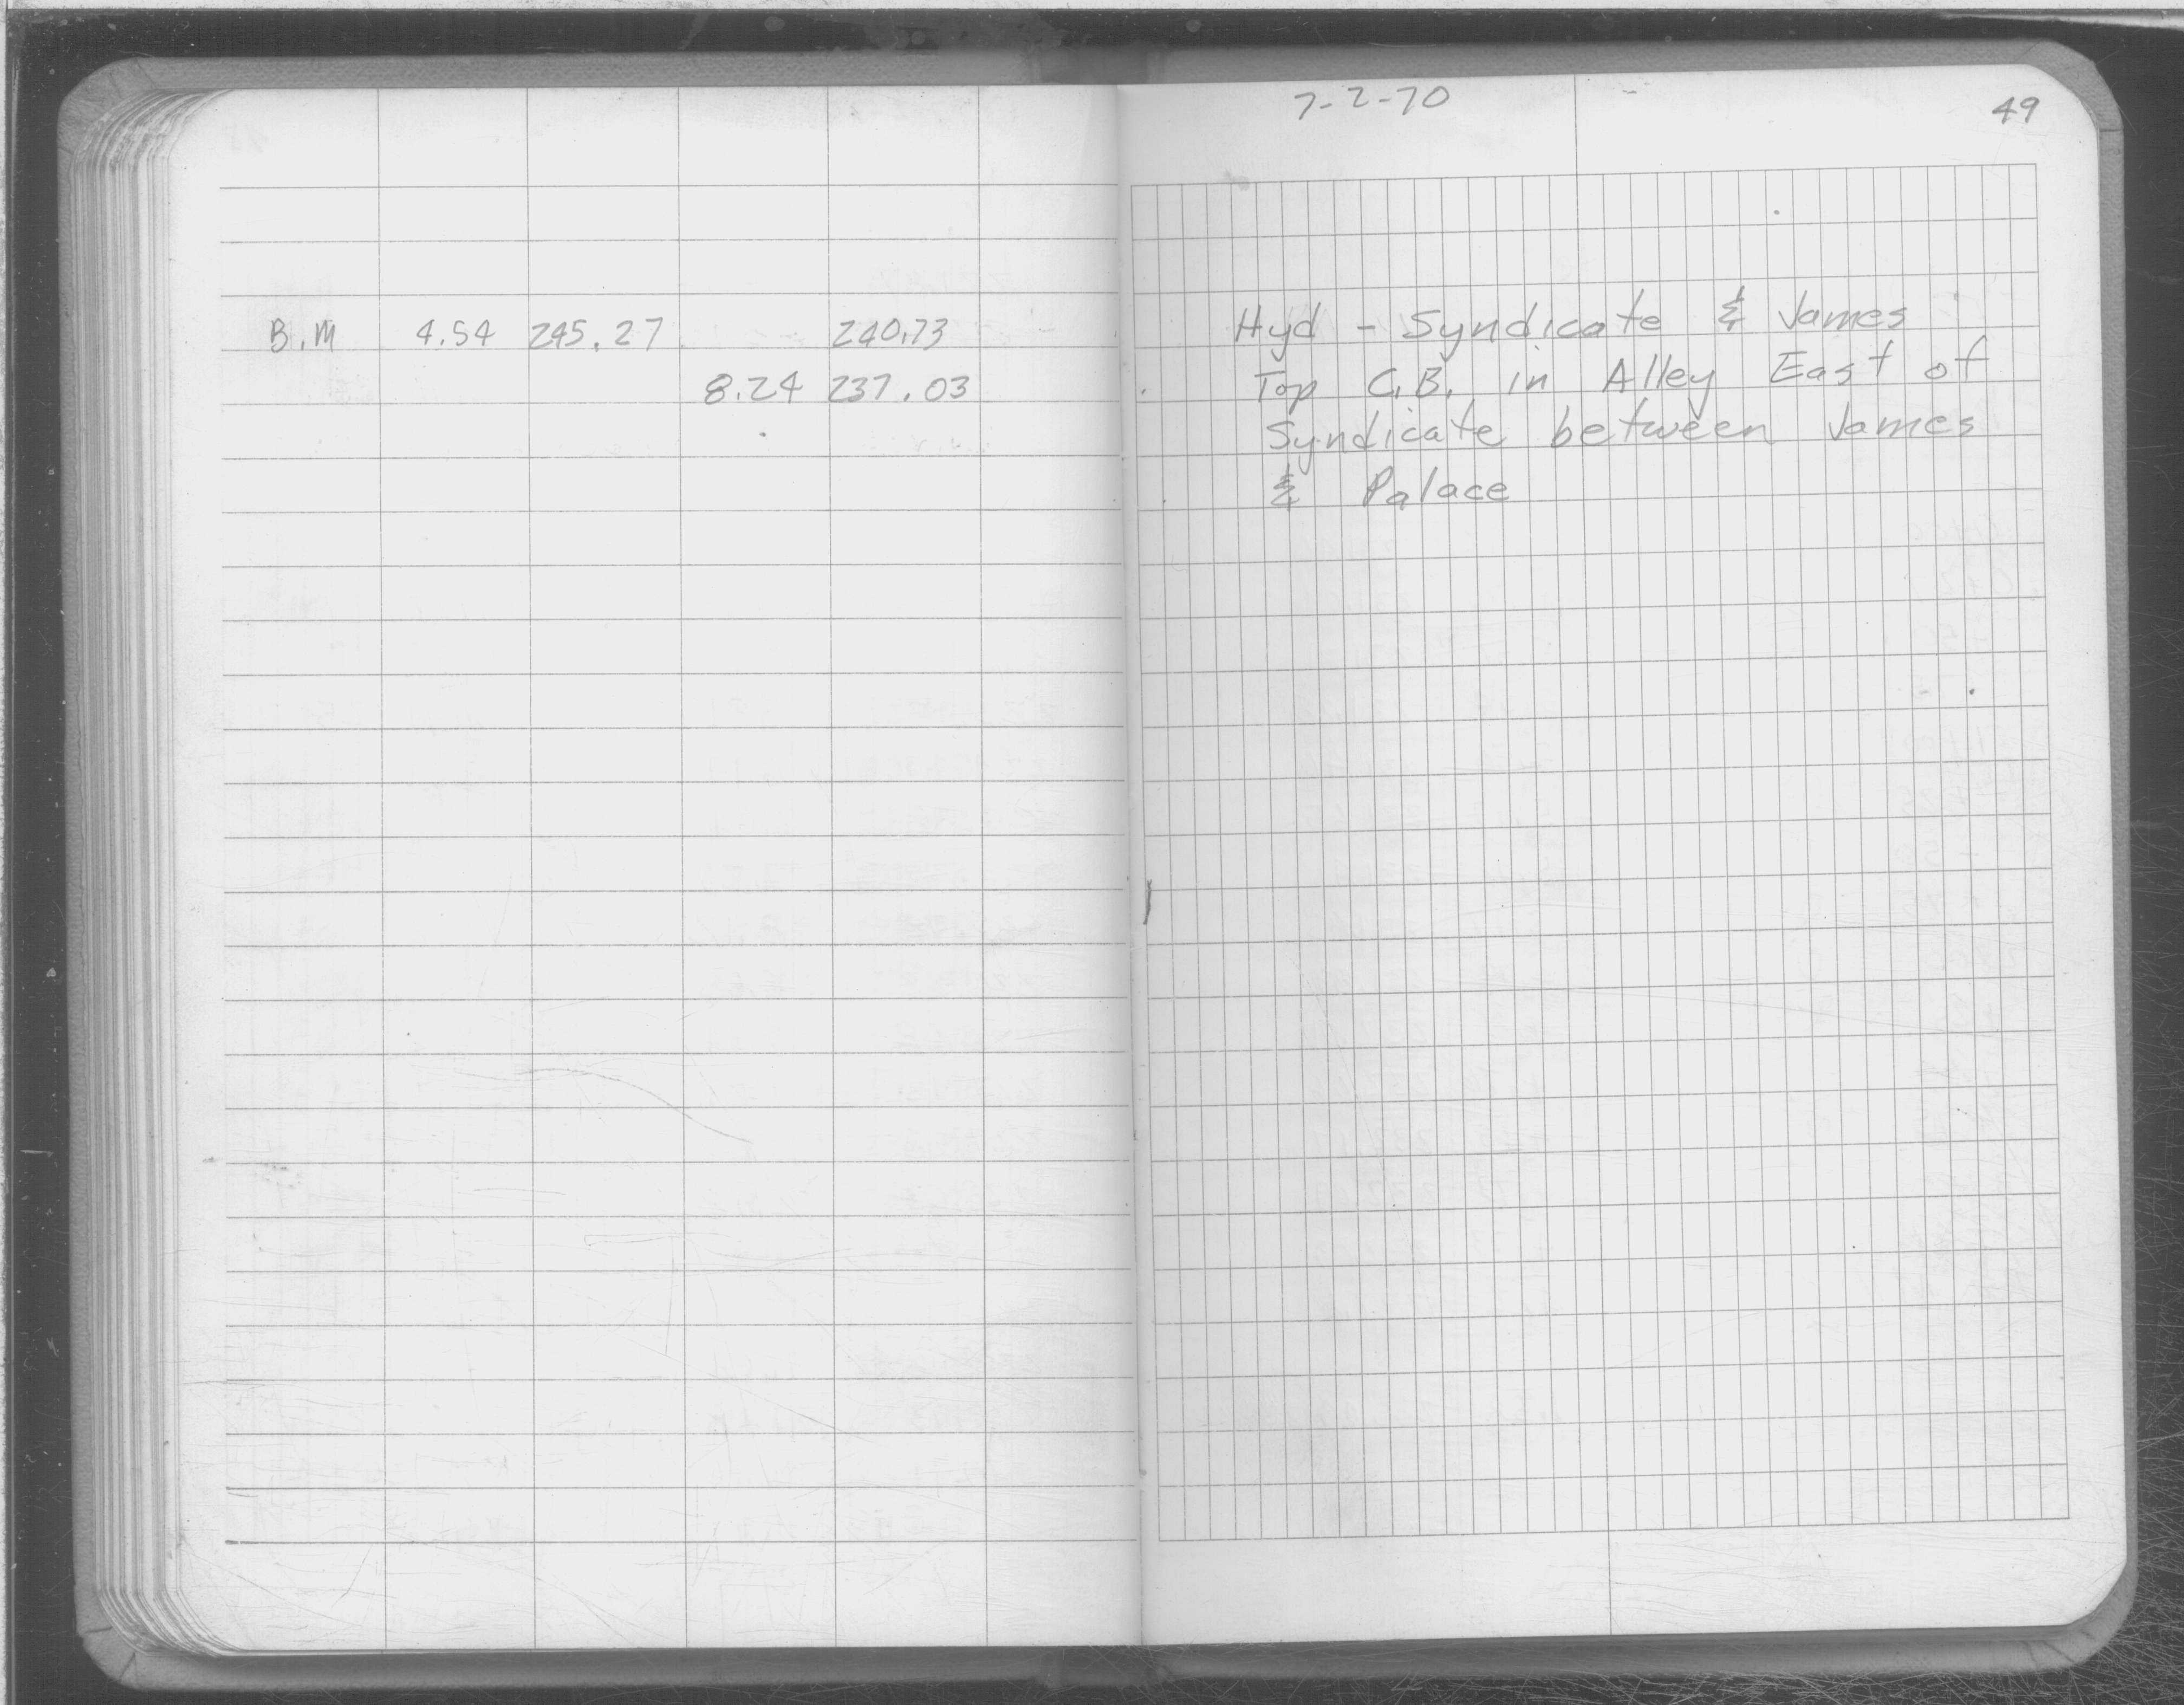 7-2-70
49
B.M 4.54 245.27 240.73
8.24 237.03
Hyd - Syndicate & James
Top C.B. in Alley East of
Syndicate between James
& Palace